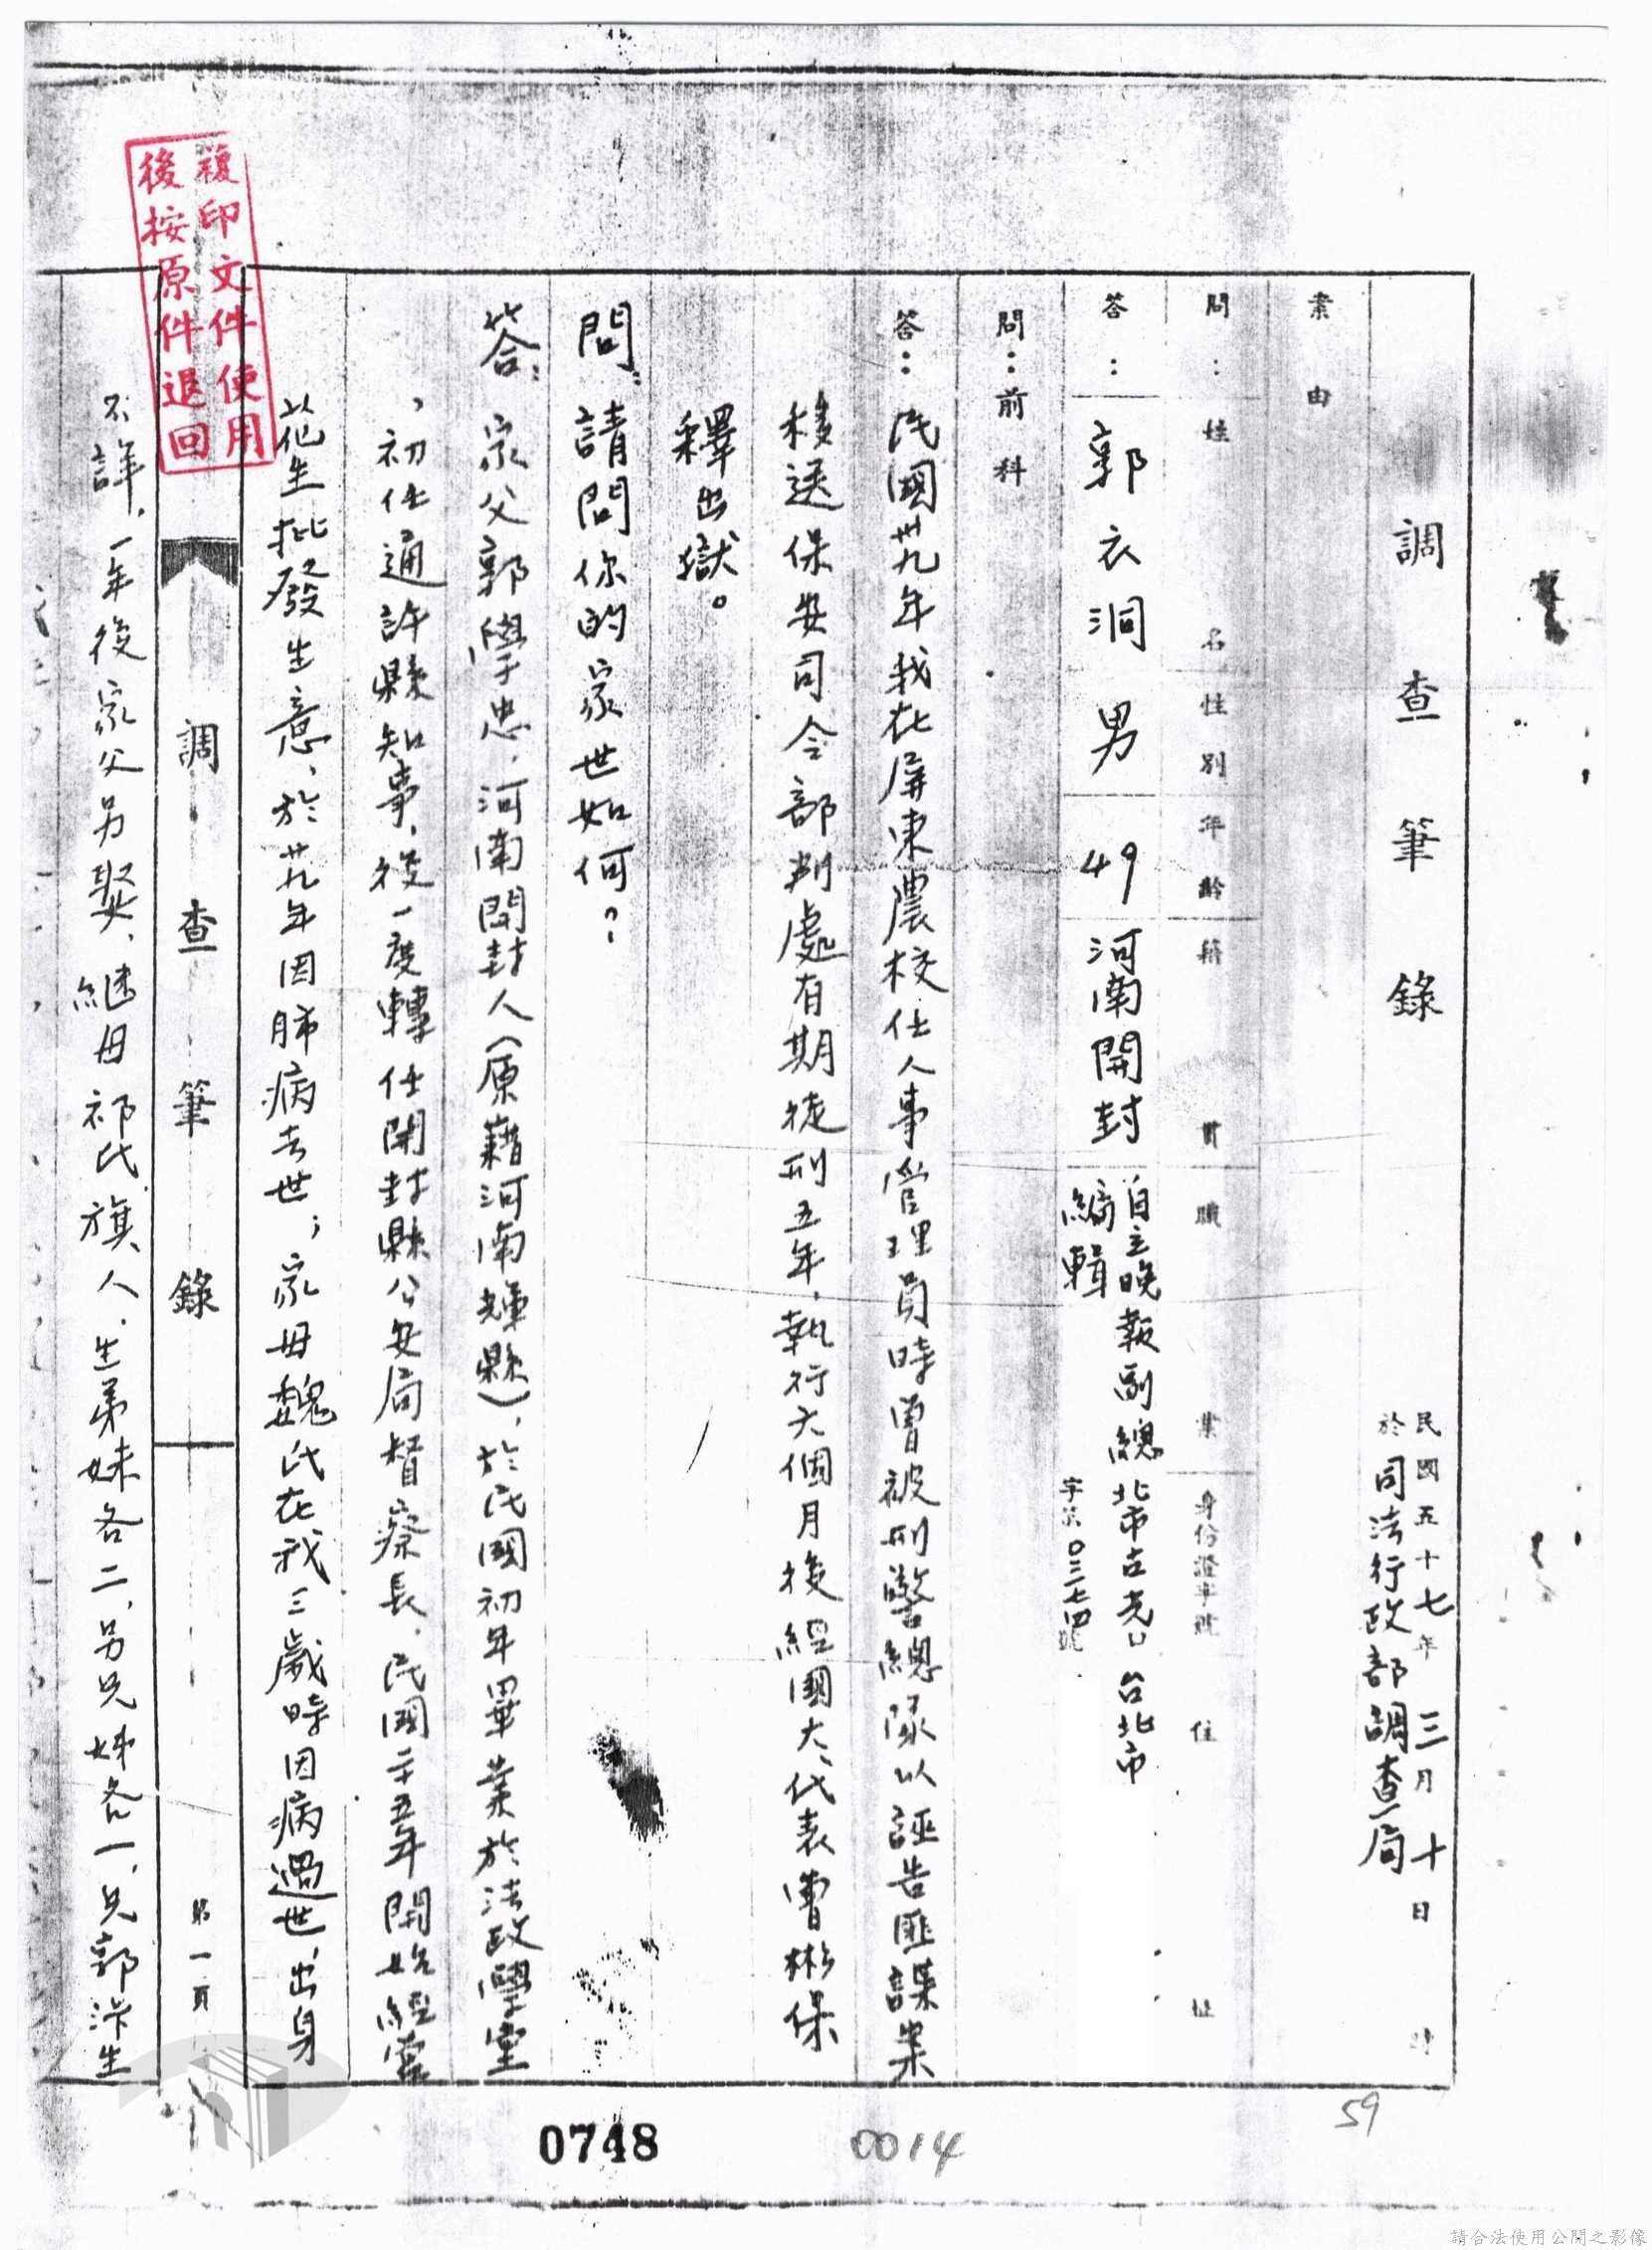 調查筆錄
民國五十七年三月十日 時
於司法行政部調查局
案由
問：姓名 性別 年齡 籍貫 職業 身份證字號 住址
答：郭衣洞 男 49 河南開封 自立晚報副總編輯 北市古 字第0三七四號 台北市
問：前科
答：民國卅九年我在屏東農校任人事管理員時曾被刑警總隊以誣告匪諜案
移送保安司令部判處有期徒刑五年，執行六個月後經國大代表曹彬保
釋出獄。
問：請問你的家世如何？
答：家父郭學忠，河南開封人（原籍河南輝縣），於民國初年畢業於法政學堂
，初任通許縣知事，後一度轉任開封縣公安局督察長，民國二五年開始經當
花生批發生意，於廿九年因肺病去世；家母魏氏在我三歲時因病過世，出身
調查筆錄
第一頁
不詳，一年後家父另娶，繼母祁氏旗人，生弟妹各二，另兄姊各一，兄郭洪生
複印文件使用
後按原件退回
0748
0014
59
請合法使用公開之影像